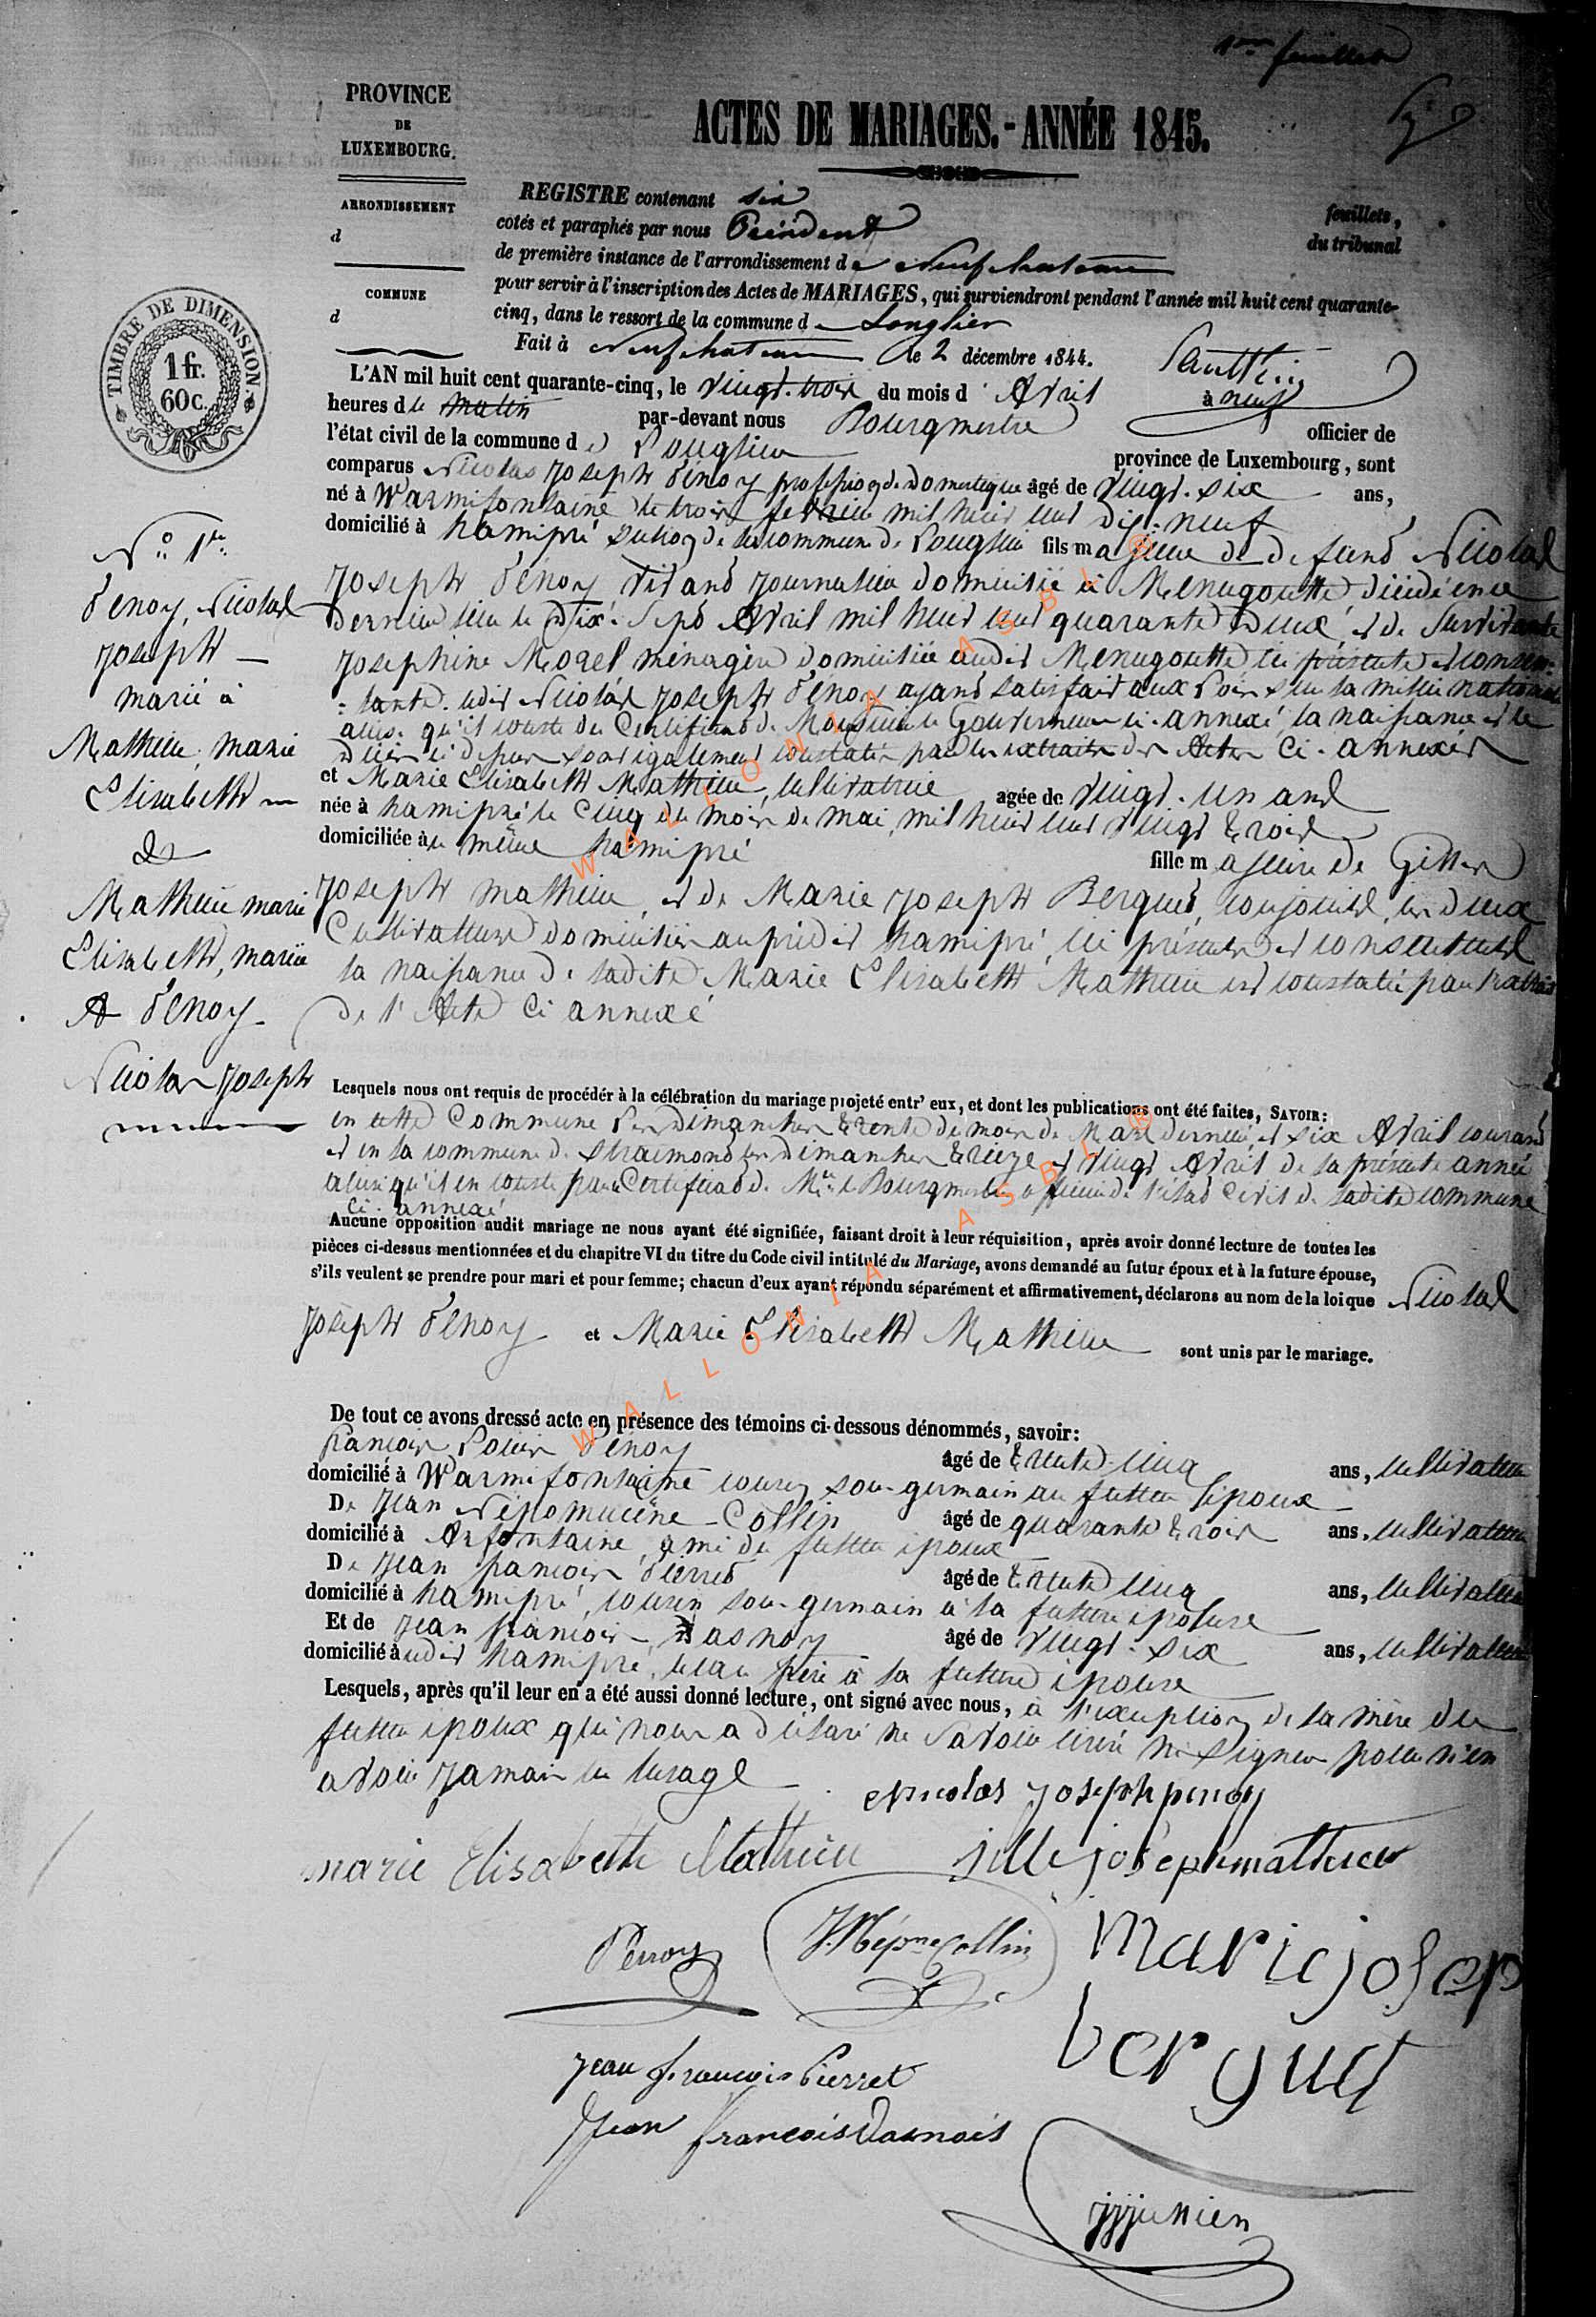 1er feuillet
PROVINCE
DE
LUXEMBOURG.
ACTES DE MARIAGES.-ANNÉE 1845.
ARRONDISSEMENT
d
COMMUNE
d
TIMBRE DE DIMENSION.
1 fr.
60c.
REGISTRE contenant six feuillets,
cotés et paraphés par nous Président du tribunal
de première instance de l'arrondissement de Neufchateau
pour servir à l'inscription des Actes de MARIAGES, qui surviendront pendant l'année mil huit cent quarante-
cinq, dans le ressort de la commune d Longlier
Fait à Neufchateau le 2 décembre 1844.
L'AN mil huit cent quarante-cinq, le vingt-trois du mois d'Avril à neuf
heures du matin par-devant nous Bourgmestre officier de
l'état civil de la commune de Longlier province de Luxembourg, sont
comparus Nicolas Joseph Penoy profession de Domestique âgé de vingt-six ans,
né à Warmifontaine le trois fevrier mil huit cent dix-neuf
domicilié à hamipré section de la commune de Longlier fils majeur de defunt Nicolas
Joseph Penoy vivant Journalier domicilié à Menugoutte décédé en ce
dernier lieu le Dix-Sept Avril mil huit cent quarante Deux, et de Survivante
Josephine Morel ménagère domiciliée audit Menugoutte ici présente et consen-
tante. ledit Nicolas Joseph Penoy ayant satisfait aux Lois sur la milice nationale
ainsi qu'il conste du Certificat de Monsieur le Gouverneur ci-annexé, la naissance et le
Décès ci-dessus sont également constatés par les extraits des Actes Ci-annexés
et Marie Elisabeth Mathieu, cultivatrice agée de vingt-un ans
née à hamipré le Cinq du mois de mai mil huit cent vingt trois
domiciliée au même hamipré fille majeure de Gilles
Joseph mathieu, et de Marie Joseph Berguet, conjoints, les deux
Cultivateurs domiciliés au prédit hamipré, ici présents et consentants
la naissance de ladite Marie Elisabeth Mathieu est constatée par l'extrait
de l'Acte Ci annexé
No 1er
Penoy, Nicolas
Joseph
marié à
Mathieu, marie
Elisabeth
&
Mathieu marie
Elisabeth, mariée
A Penoy
Nicolas Joseph
Lesquels nous ont requis de procéder à la célébration du mariage projeté entr' eux, et dont les publications ont été faites, SAVOIR:
en cette Commune les Dimanches trente du mois de Mars dernier et six Avril courant
et en la commune de Straimont les dimanches treize et vingt Avril de la présente année
ainsi qu'il en conste par le Certificat de Mr. le Bourgmestre officier de l'état Civil de ladite commune
Ci-annexé
Aucune opposition audit mariage ne nous ayant été signifiée, faisant droit à leur réquisition, après avoir donné lecture de toutes les
pièces ci-dessus mentionnées et du chapitre VI du titre du Code civil intitulé du Mariage, avons demandé au futur époux et à la future épouse,
s'ils veulent se prendre pour mari et pour femme; chacun d'eux ayant répondu séparément et affirmativement, déclarons au nom de la loi que Nicolas
Joseph Penoy et Marie Elisabeth Mathieu sont unis par le mariage.
De tout ce avons dressé acte en présence des témoins ci-dessous dénommés, savoir:
françois Penoy âgé de trente-cinq ans, cultivateur
domicilié à Warmifontaine cousin sous-germain au futur époux
De Jean Népomucène Collin âgé de quarante trois ans, cultivateur
domicilié à Arfontaine, ami du futur époux
De Jean françois Pierret âgé de trente cinq ans, cultivateur
domicilié à hamipré, cousin sous-germain à la future épouse
Et de Jean françois Dasnoy âgé de vingt-six ans, cultivateur
domicilié audit hamipré, beau frère à la future épouse
Lesquels, après qu'il leur en a été aussi donné lecture, ont signé avec nous, à l'exception de la mère du
futur époux qui nous a déclaré ne Savoir écrire ni Signer pour n'en
avoir jamais eu l'usage
Nicolas Joseph penoy
marie Elisabeth Mathieu
jille joseph mathieu
Penoy
J. Népne Collin
Marie josep
berguet
Jean françois Pierret
Jean françois Dasnois
jjjunien
WALLONIA ASBL ®
WALLONIA ASBL ®